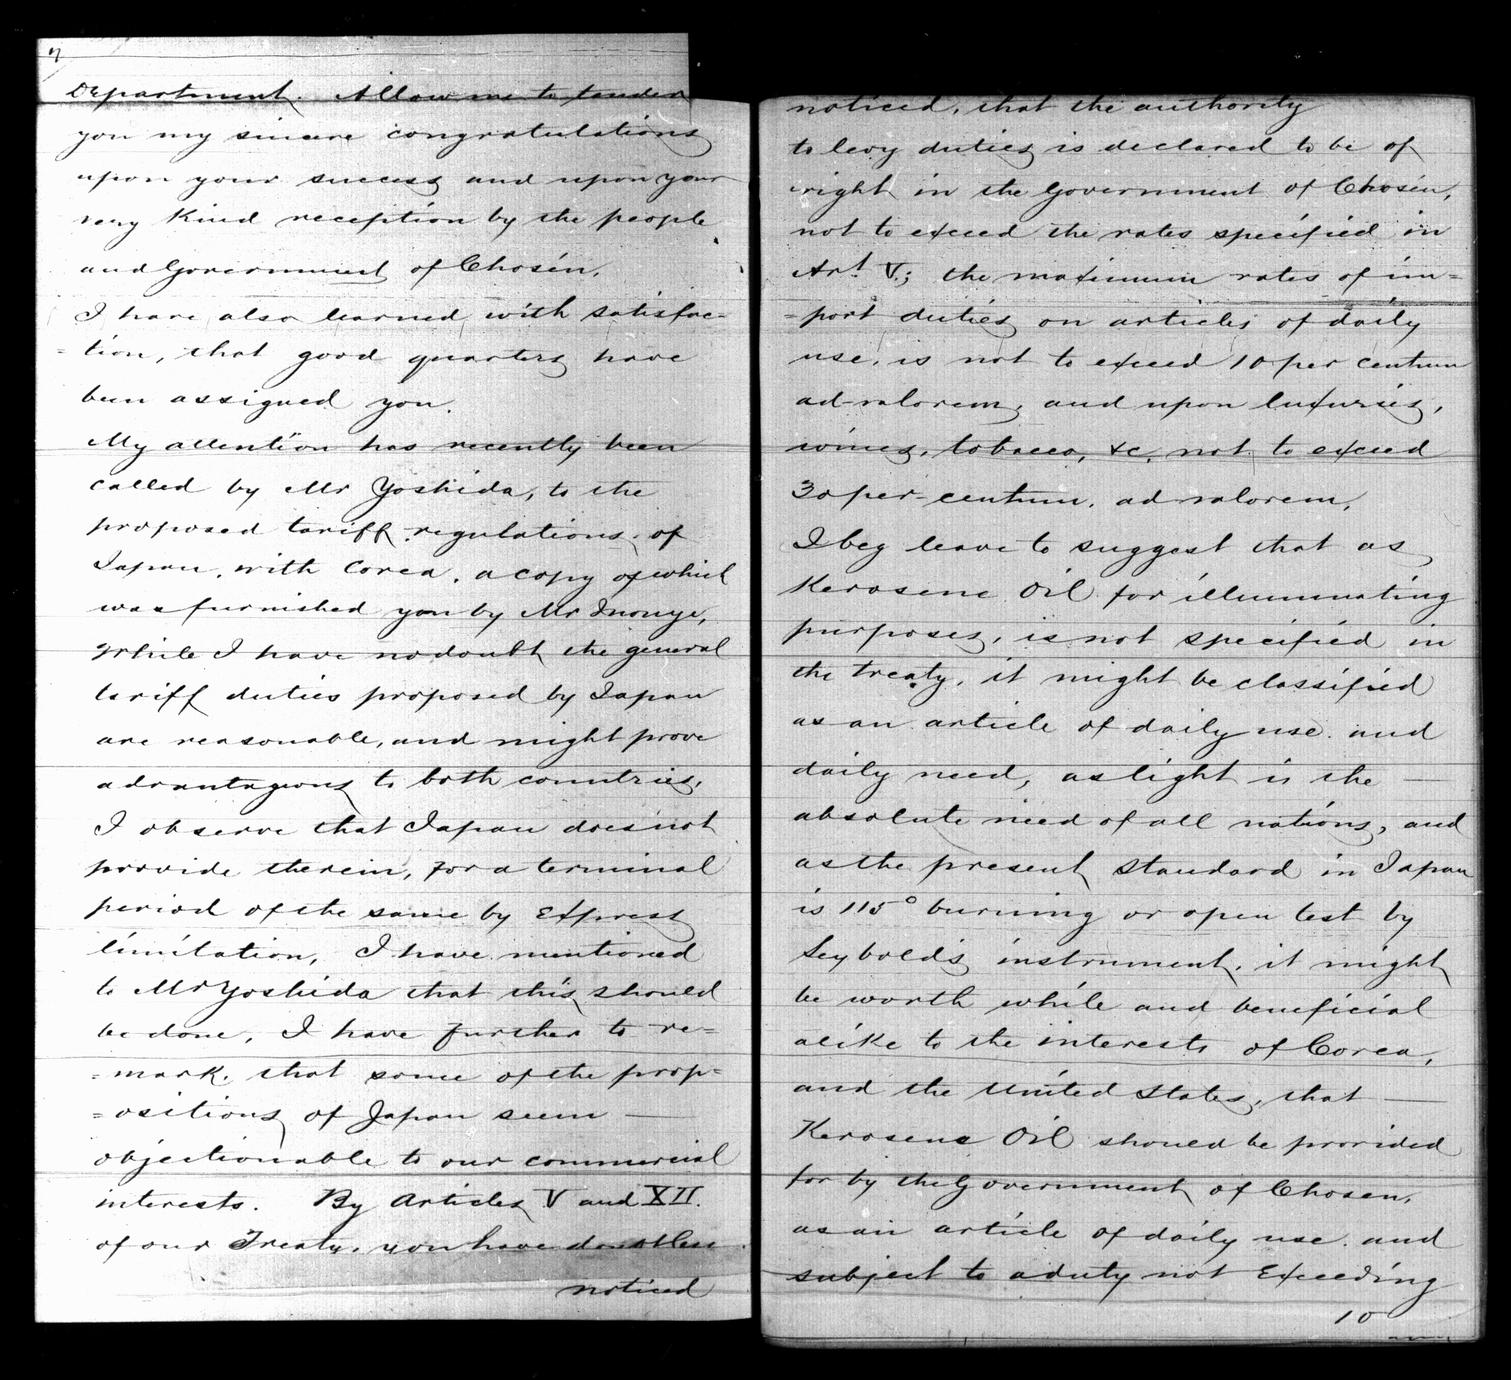 Department. Allow me to tender
you my sincere congratulations
upon your success and upon your
very kind reception by the people
and Government of Chosén.
I have also learned with satisfac-
-tion, that good quarters have
been assigned you.
My attention has recently been
called by Mr Yoshida, to the
proposed tariff regulations, of
Japan, with Corea, a copy of which
was furnished you by Mr Inouye,
While I have no doubt the general
tariff duties proposed by Japan
are reasonable, and might prove
advantagious to both countries,
I observe that Japan does not
provide therein, for a terminal
period of the same by Express
limitation, I have mentioned
to Mr Yoshida that this should
be done, I have further to re=
=mark, that some of the prop=
=ositions of Japan seem —
objectionable to our commercial
interests. By Articles V and XII.
of our Treaty, you have doubtless
noticed
noticed, that the authority
to levy duties is declared to be of
right in the Government of Chosén,
not to exceed the rates specified in
Art. V.; the maximum rates of im=
=port duties on articles of daily
use, is not to exceed 10 per centum
ad-valorem, and upon luxuries,
wines, tobacco, &c, not to exceed
30 per-centum, ad valorem,
I beg leave to suggest that as
Kerosene Oil for illuminating
purposes, is not specified in
the treaty, it might be classified
as an article of daily use and
daily need, as light is the —
absolute need of all nations, and
as the present Standard in Japan
is 115° burning or open test by
Seybold's instrument, it might
be worth while and beneficial
alike to the interests of Corea,
and the United States, that —
Kerosene Oil should be provided
for by the Government of Chosen,
as an article of daily use and
subject to a duty not Exceeding
10